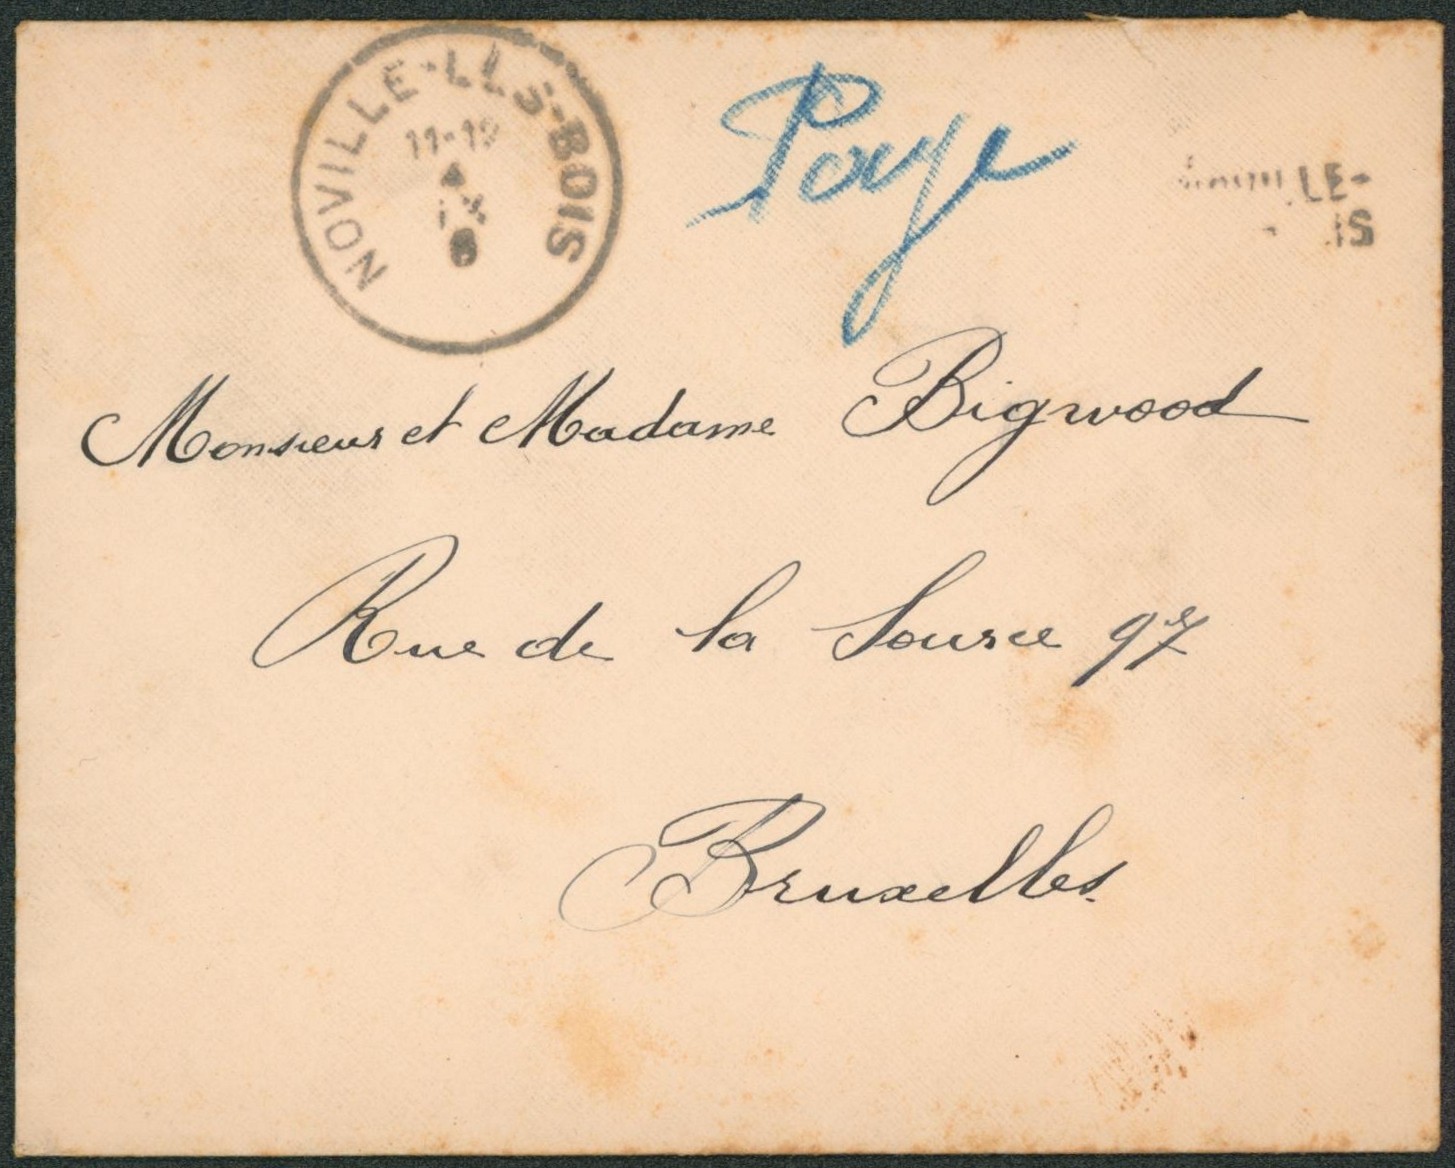 NOVILLE-LES-BOIS
11-12
4
IX
Paye
LE-
IS
Monsieur et Madame Bigwood
Rue de la Source 97
Bruxelles.